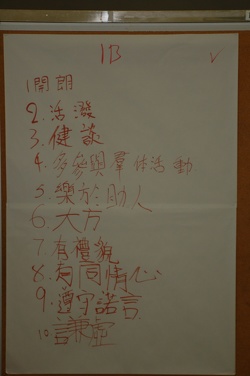 1B
1 開朗
2. 活潑
3. 健談
4. 多參與羣体活動
5. 樂於助人
6. 大方
7 有禮貌
8. 有同情心
9. 遵守諾言
10. 謙虛